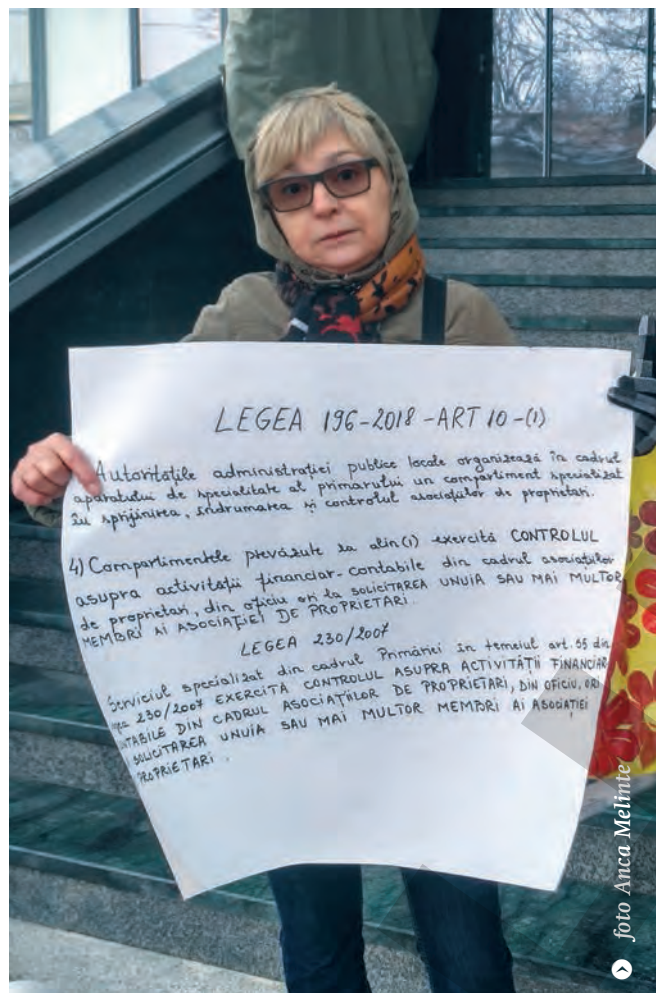 LEGEA 196-2018-ART 10-(1)
Autoritățile administrației publice locale organizează în cadrul
aparatului de specialitate al primarului un compartiment specializat
în sprijinirea, îndrumarea și controlul asociațiilor de proprietari.
4) Compartimentele prevăzute la alin(1) exercită CONTROLUL
asupra activității financiar-contabile din cadrul asociațiilor
de proprietari, din oficiu ori la SOLICITAREA UNUIA SAU MAI MULTOR
MEMBRI AI ASOCIAȚIEI DE PROPRIETARI.
LEGEA 230/2007
Serviciul specializat din cadrul Primăriei în temeiul art. 55 din
230/2007 EXERCITĂ CONTROLUL ASUPRA ACTIVITĂȚII FINANCIAR
NTABILE DIN CADRUL ASOCIAȚIILOR DE PROPRIETARI, DIN OFICIU, ORI
SOLICITAREA UNUIA SAU MAI MULTOR MEMBRI AI ASOCIAȚIEI
PROPRIETARI.
foto Anca Melinte